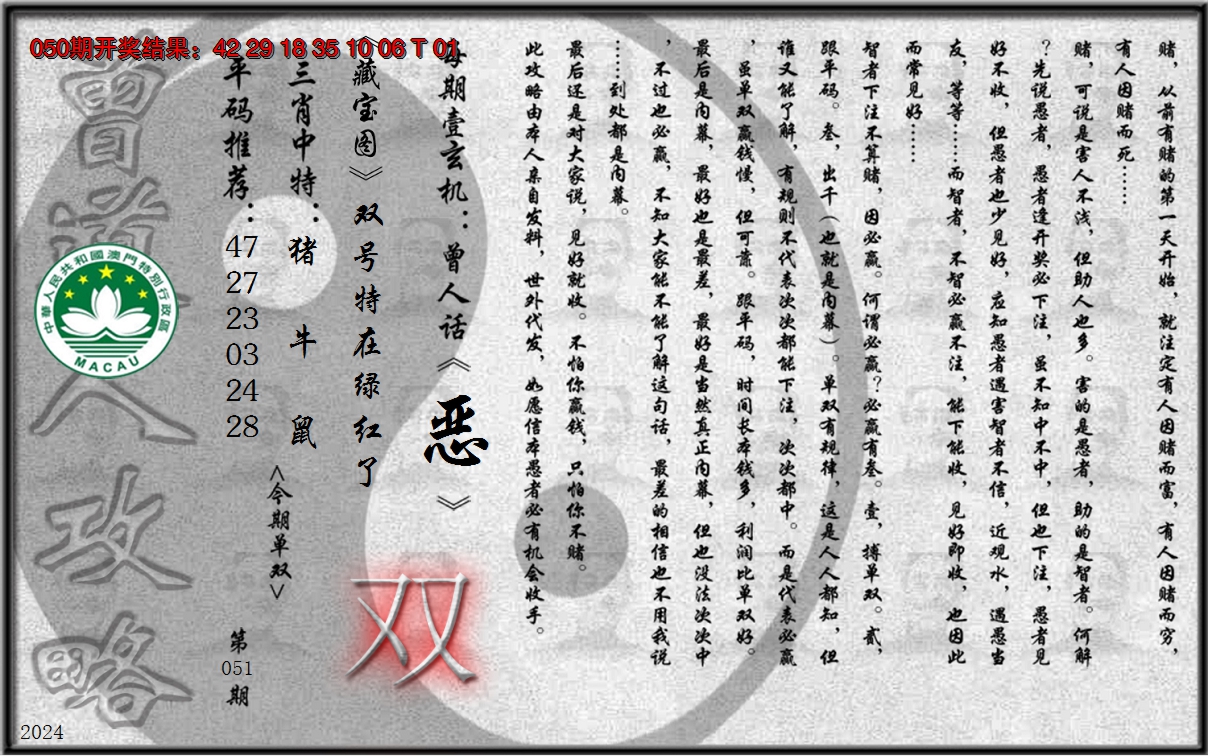 050期开奖结果：42 29 18 35 10 06 T 01
赌，从前有赌的第一天开始，就注定有人因赌而富，有人因赌而穷，
有人因赌而死……
赌，可说是害人不浅，但助人也多。害的是愚者，助的是智者。何解
？先说愚者，愚者逢开奖必下注，虽不知中不中，但也下注，愚者见
好不收，但愚者也少见好，应知愚者遇害智者不信，近观水，遇愚当
友，等等……而智者，不智必赢不注，能下能收，见好即收，也因此
而常见好……
智者下注不算赌，因必赢。何谓必赢？必赢有叁。壹，搏单双。贰，
跟平码。叁，出千（也就是内幕）。单双有规律，这是人人都知，但
谁又能了解，有规则不代表次次都能下注，次次都中。而是代表必赢
，虽单双赢钱慢，但可靠。跟平码，时间长本钱多，利润比单双好。
最后是内幕，最好也是最差，最好是当然真正内幕，但也没法次次中
，不过也必赢，不知大家能不能了解这句话，最差的相信也不用我说
……到处都是内幕。
最后还是对大家说，见好就收。不怕你赢钱，只怕你不赌。
此攻略由本人亲自发料，世外代发，如愿信本愚者必有机会收手。
每期壹玄机：曾人话《恶》
《藏宝图》双号特在绿红了
双
三肖中特：猪 牛 鼠
<今期单双>
平码推荐：47 27 23 03 24 28
第051期
曾道人攻略
中華人民共和國澳門特別行政區
MACAU
2024